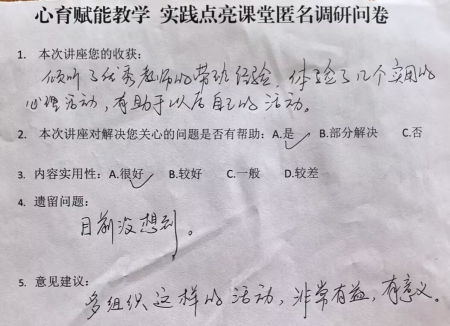 心育赋能教学 实践点亮课堂匿名调研问卷
1. 本次讲座您的收获:
倾听了优秀教师的带班经验，体验了几个实用的
心理活动，有助于以后自己的活动。
2. 本次讲座对解决您关心的问题是否有帮助:A.是✓ B.部分解决 C.否
3. 内容实用性: A.很好✓ B.较好 C.一般 D.较差
4. 遗留问题:
目前没想到。
5. 意见建议:
多组织这样的活动，非常有益，有意义。